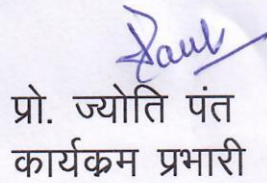 प्रो. ज्योति पंत
कार्यक्रम प्रभारी